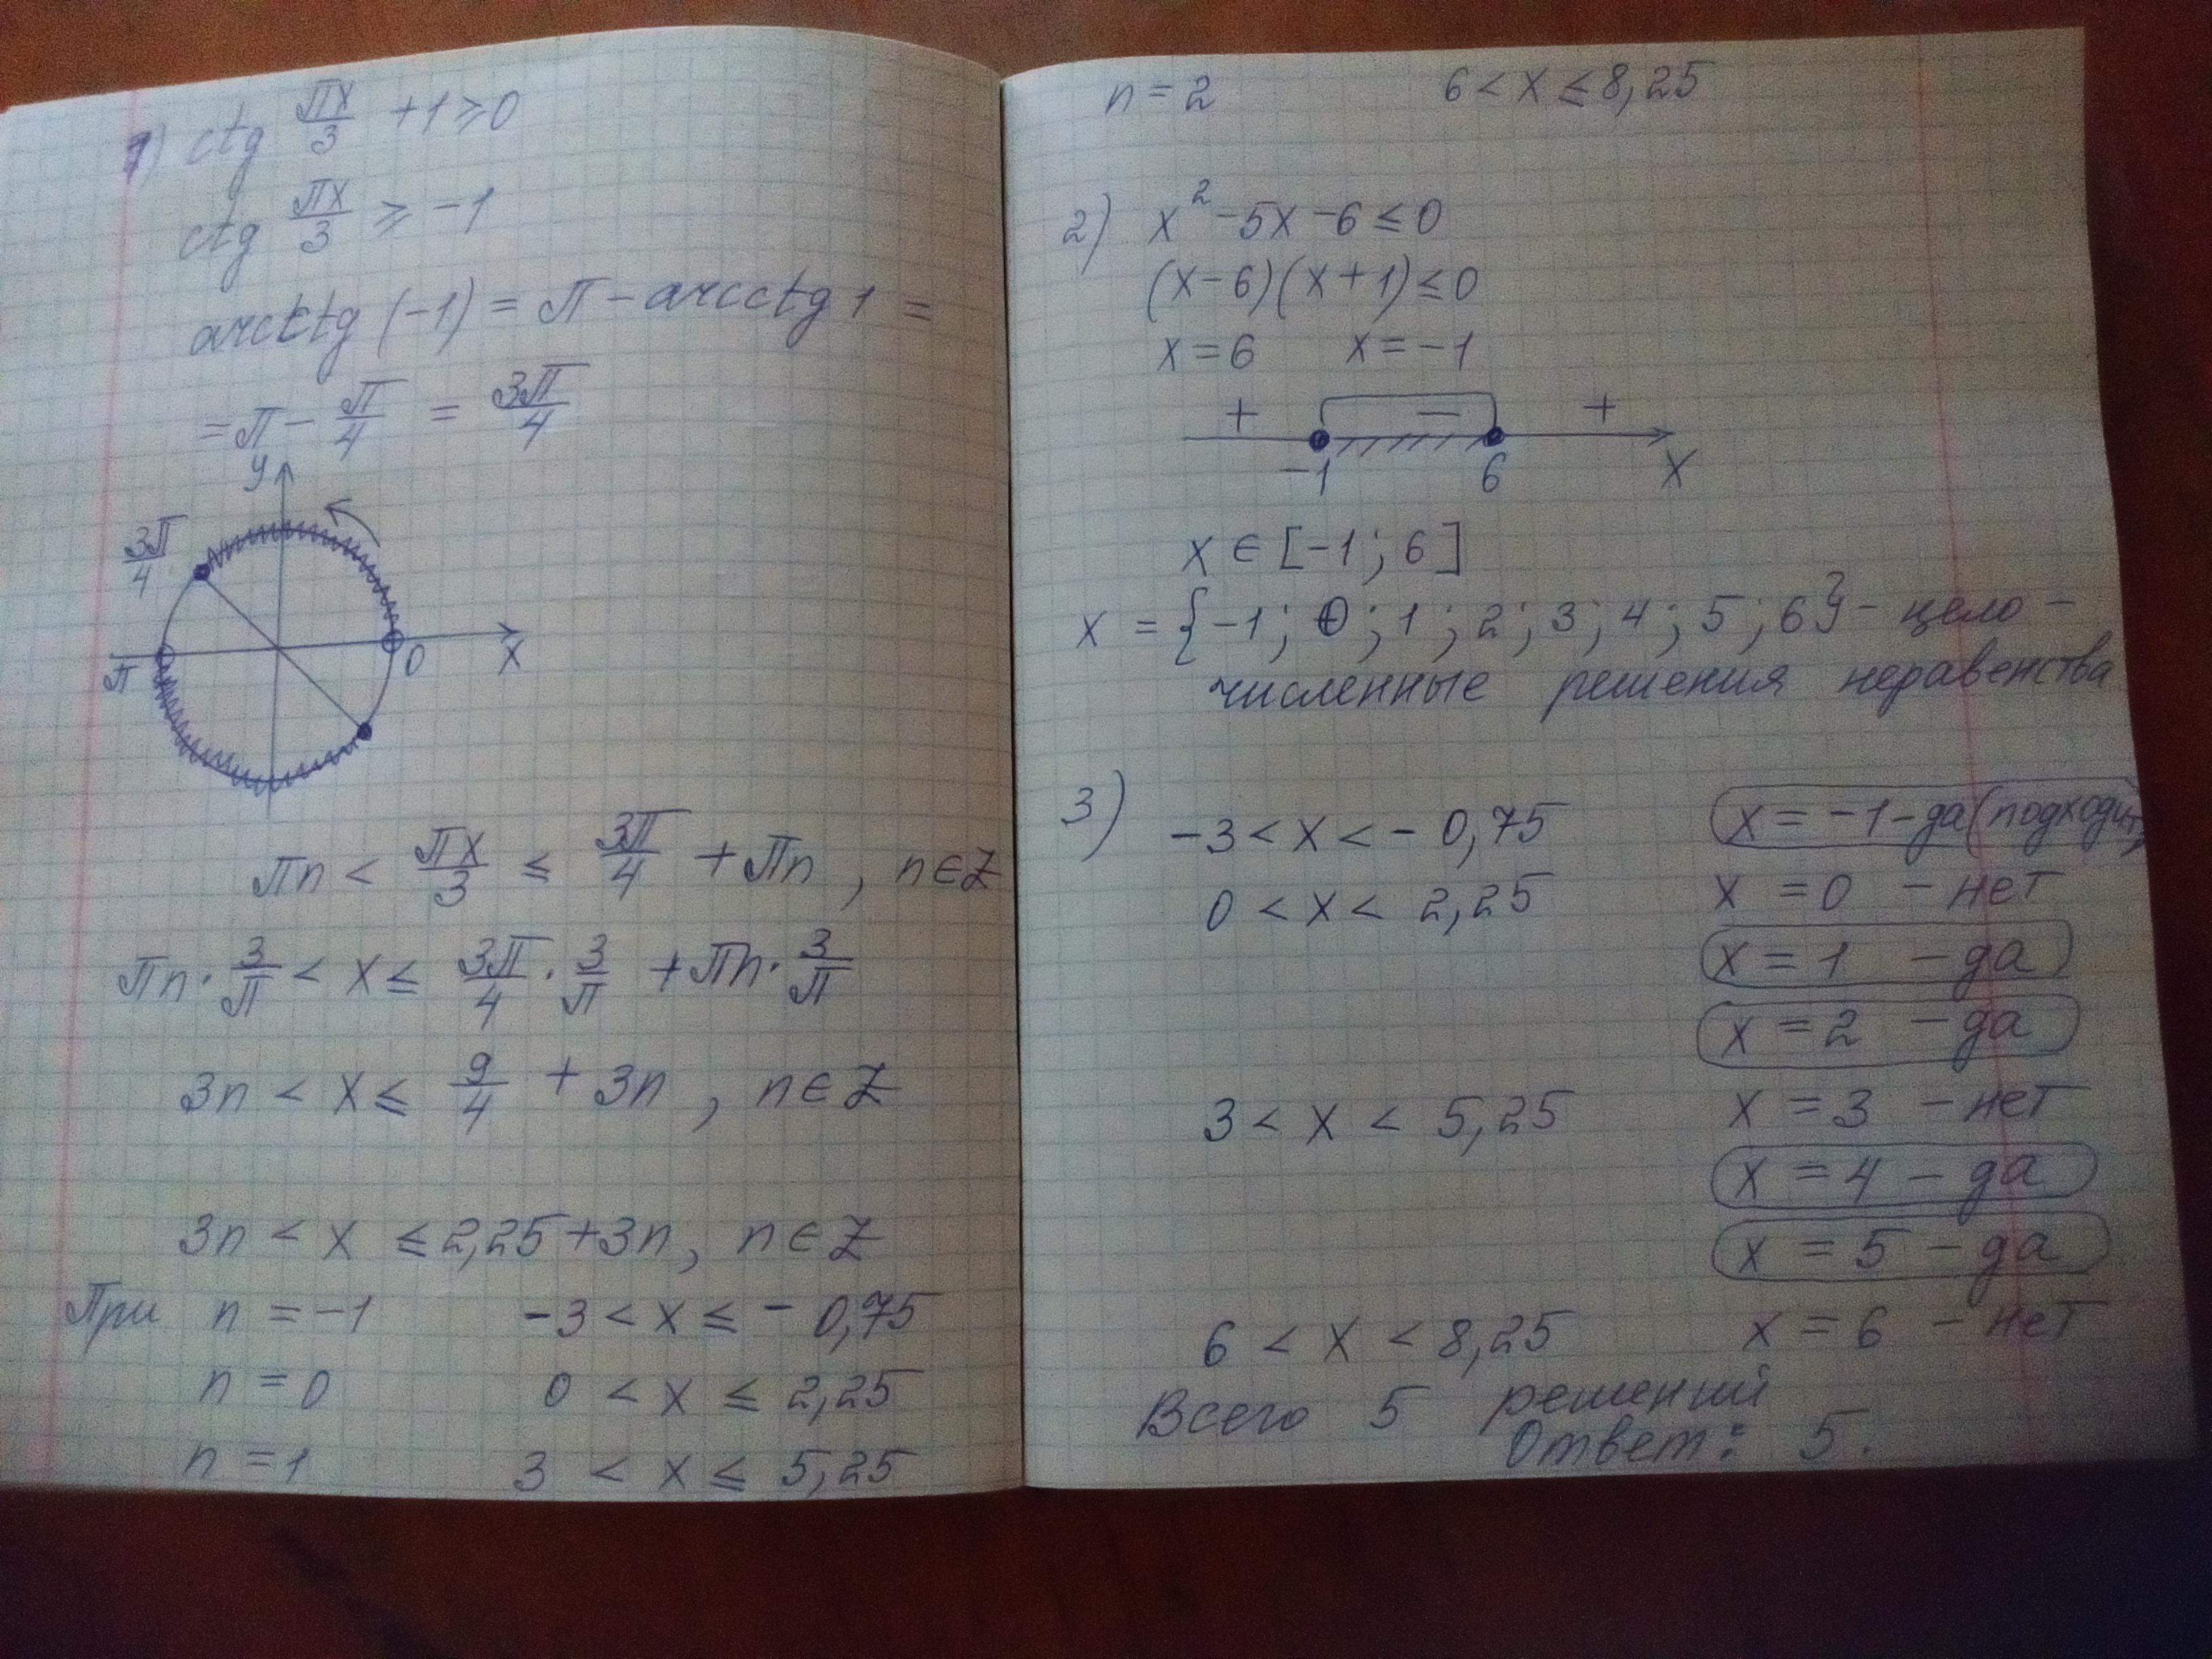 1) ctg πx/3 + 1 ≥ 0
ctg πx/3 ≥ -1
arcctg (-1) = π - arcctg 1 =
= π - π/4 = 3π/4
y
3π/4
π 0 x
πn < πx/3 ≤ 3π/4 + πn, n∈Z
πn · 3/π < x ≤ 3π/4 · 3/π + πn · 3/π
3n < x ≤ 9/4 + 3n, n∈Z
3n < x ≤ 2,25 + 3n, n∈Z
При n = -1 -3 < x ≤ -0,75
n = 0 0 < x ≤ 2,25
n = 1 3 < x ≤ 5,25
n = 2 6 < x ≤ 8,25
2) x² - 5x - 6 ≤ 0
(x-6)(x+1) ≤ 0
x = 6 x = -1
+ − +
-1 6 x
x ∈ [-1; 6]
x = {-1; 0; 1; 2; 3; 4; 5; 6} - цело-
численные решения неравенства
3) -3 < x < -0,75 x = -1 - да (подходит)
0 < x < 2,25 x = 0 - нет
x = 1 - да
x = 2 - да
3 < x < 5,25 x = 3 - нет
x = 4 - да
x = 5 - да
6 < x < 8,25 x = 6 - нет
Всего 5 решений
Ответ: 5.